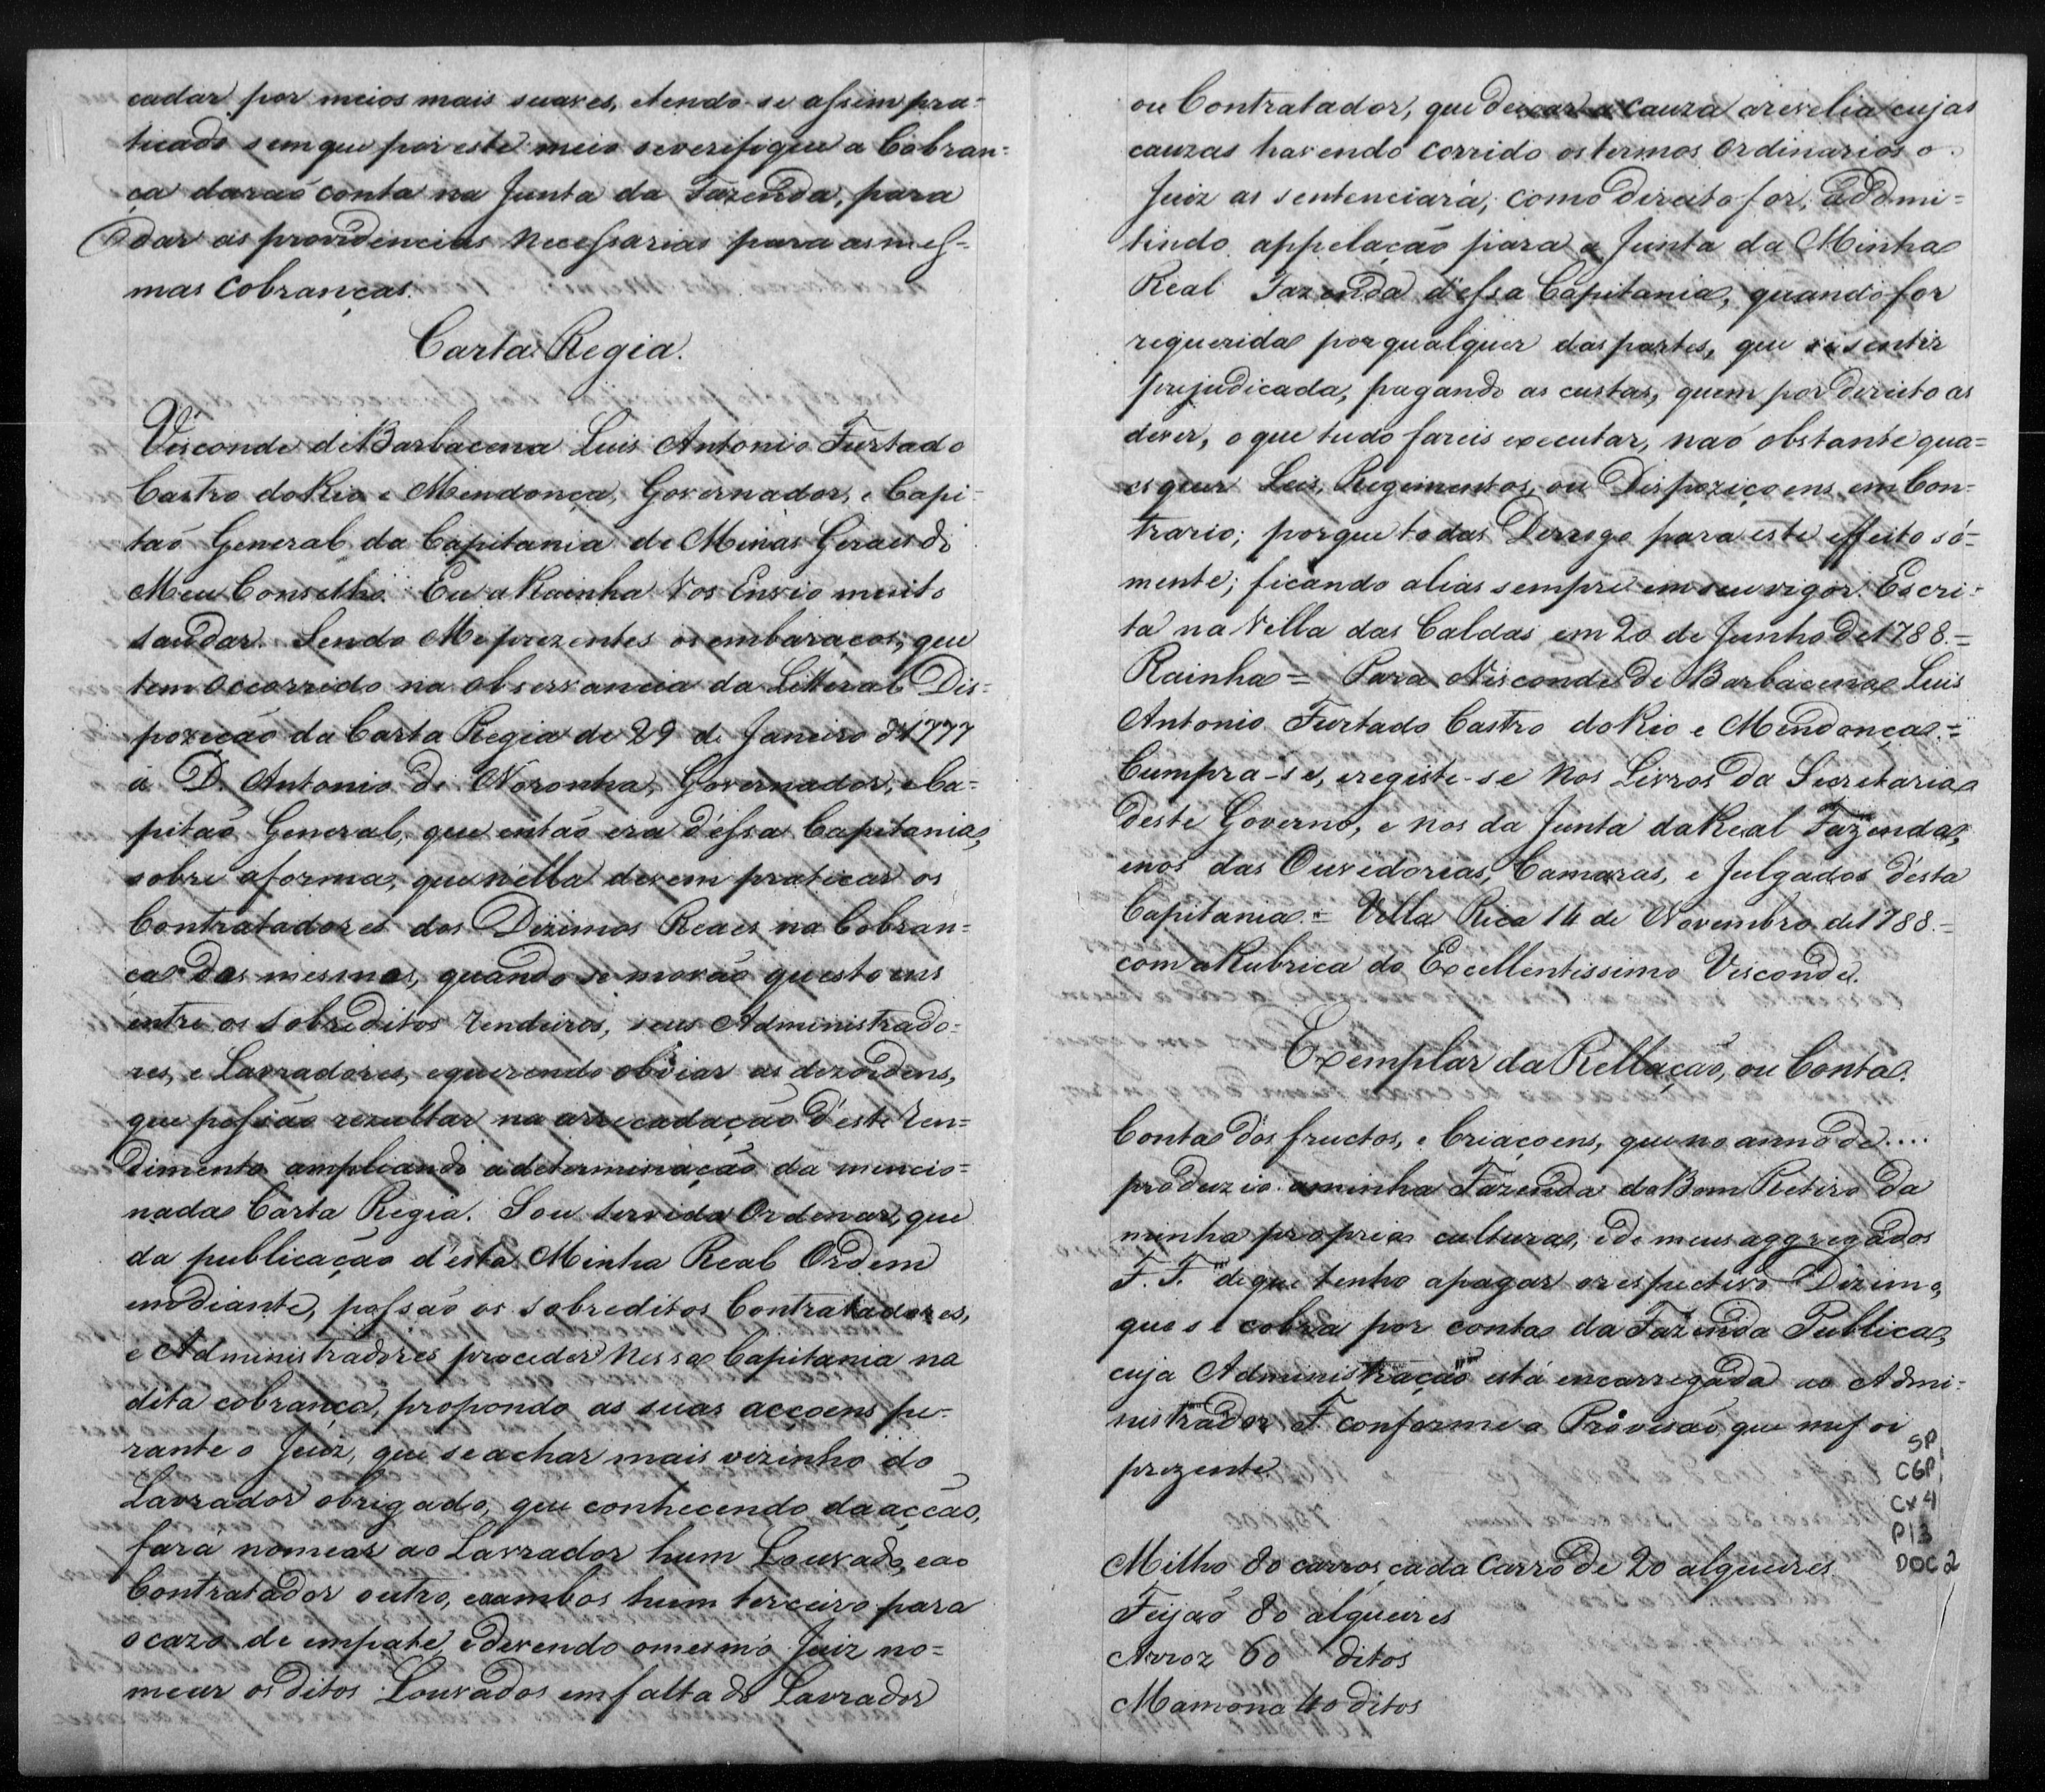 cadar por meios mais suaves, etendo-se assim pra=
ticado semque poreste meio severifique a Cobran=
ça daraõ conta na Junta da Fazenda, para
dar as providencias necessarias para asmes=
mas Cobranças.
Carta Regia.
Visconde deBarbacena Luis Antonio Furtado
Castro doRio e Mendonça, Governador, e Capi=
taõ General da Capitania de Minas Geraes do
Meu Conselho. Eu aRainha Vos Envio muito
saudar. Sendo Meprezentes os embaraços, que
tem occorrido na observancia da Litteral Dis=
pozicaõ da Carta Regia de 29 de Janeiro de1777
á D. Antonio de Noronha, Governador, e Ca=
pitaõ General, que entaõ era d'essa Capitania,
sobre aforma, quen'ella devem praticar os
Contratadores dos Dizimos Reaes na Cobran=
ça dos mesmos, quando se movaõ questoens
entre os sobreditos rendeiros, seus Administrado=
res, e Lavradores, equerendo obviar as dezordens,
que possaõ rezultar na arrecadaçaõ d'este ren=
dimento ampliando adeterminaçaõ da mencio=
nada Carta Regia. Sou servida Ordenar, que
da publicaçaõ d'esta Minha Real Ordem
emdiante, possaõ os sobreditos Contratadores,
e Administradores proceder nessa Capitania na
dita cobrança, propondo as suas acçoens pe=
rante o Juiz, que seachar mais vizinho do
Lavrador obrigado, que conhecendo daacçaõ,
fará nomear ao Lavrador hum Louvado, eao
Contratador outro, eaambos hum terceiro para
ocazo de empate, edevendo omesmo Juiz no=
mear os ditos Louvados emfalta do Lavrador
ou Contratador, que deixar a cauza arevelia cujas
cauzas havendo corrido ostermos Ordinarios o
Juiz as sentenciará, como direito for, addmi=
tindo appelaçaõ para a Junta da Minha
Real Fazenda d'essa Capitania, quando for
requerida porqualquer das partes, que se sentir
prejudicada, pagando as custas, quem por direito as
dever, o que tudo fareis executar, naõ obstante qua=
esquer Leis, Regimentos, ou Dispoziçoens em Con=
trario; porque todas Derrogo para este effeito só=
mente; ficando alias sempre em seu vigor. Escri=
ta na Villa das Caldas em 20 de Junho de1788.=
Rainha = Para Visconde de Barbacena Luis
Antonio Furtado Castro doRio e Mendonça.=
Cumpra-se, eregiste-se nos Livros da Secretaria
deste Governo, e nos da Junta daReal Fazenda,
enos das Ouvedorias, Camaras, e Julgados d'esta
Capitania.= Villa Rica 14 de Novembro de1788.=
com aRubrica do Excellentissimo Visconde.
Exemplar da Rellaçaõ, ou Conta.
Conta dos fructos, e Criaçoens, que no anno de....
produzio aminha Fazenda doBom Retiro da
minha propria cultura, ede meus aggregados
F. F. "deque tenho apagar orespectivo Dizimo,
que se cobra por conta da Fazenda Publica,
cuja Administraçaõ está encarregada ao Admi=
nistrador F. conforme a Provisaõ, que mefoi
prezente
Milho 80 carros, cada Carro de 20 alqueires
Feijaõ 80 alqueires
Arroz 60 ditos
Mamona 40 ditos
SP
CGP
Cx4
P13
DOC2